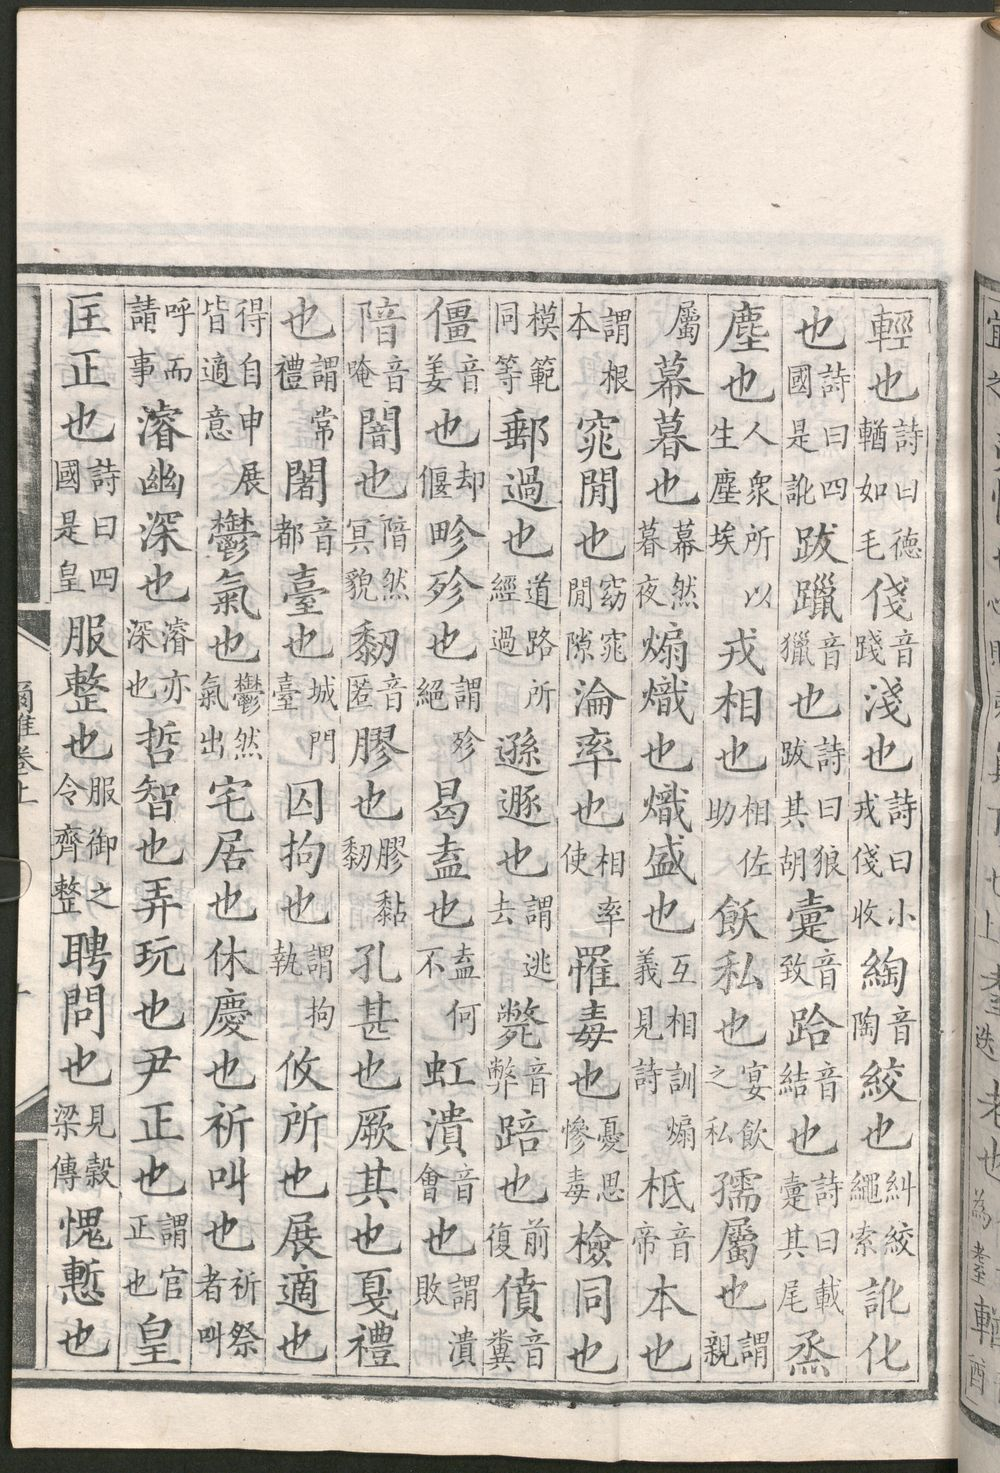 輕也詩曰德輶如毛俴音踐淺也詩曰小戎俴收綯音陶絞也糾絞繩索訛化
也詩曰四國是訛跋躐音獵也詩曰狼跋其胡疐音致跲音結也詩曰載疐其尾烝
塵也人衆所以生塵埃戎相也相佐助飫私也宴飲之私孺屬也謂親
屬幕暮也幕然暮夜煽熾也熾盛也互相訓煽義見詩柢音帝本也
謂根本窕閒也窈窕閒隙淪率也相率使罹毒也憂思慘毒檢同也
模範同等郵過也道路所經過遜遯也謂逃去斃音弊踣也前復僨音糞
僵音姜也却偃畛殄也謂殄絕曷盍也盍何不虹潰音會也謂潰敗
陪音唵闇也陪然冥貌䵒音匿膠也膠黏䵒孔甚也厥其也戛禮
也謂常禮闍音都臺也城門臺囚拘也謂拘執攸所也展適也
得自申展皆適意鬱氣也鬱然氣出宅居也休慶也祈叫也祈祭者叫
呼而請事濬幽深也濬亦深也哲智也弄玩也尹正也謂官正也皇
匡正也詩曰四國是皇服整也服御之令齊整聘問也見穀梁傳愧慙也
爾雅卷上